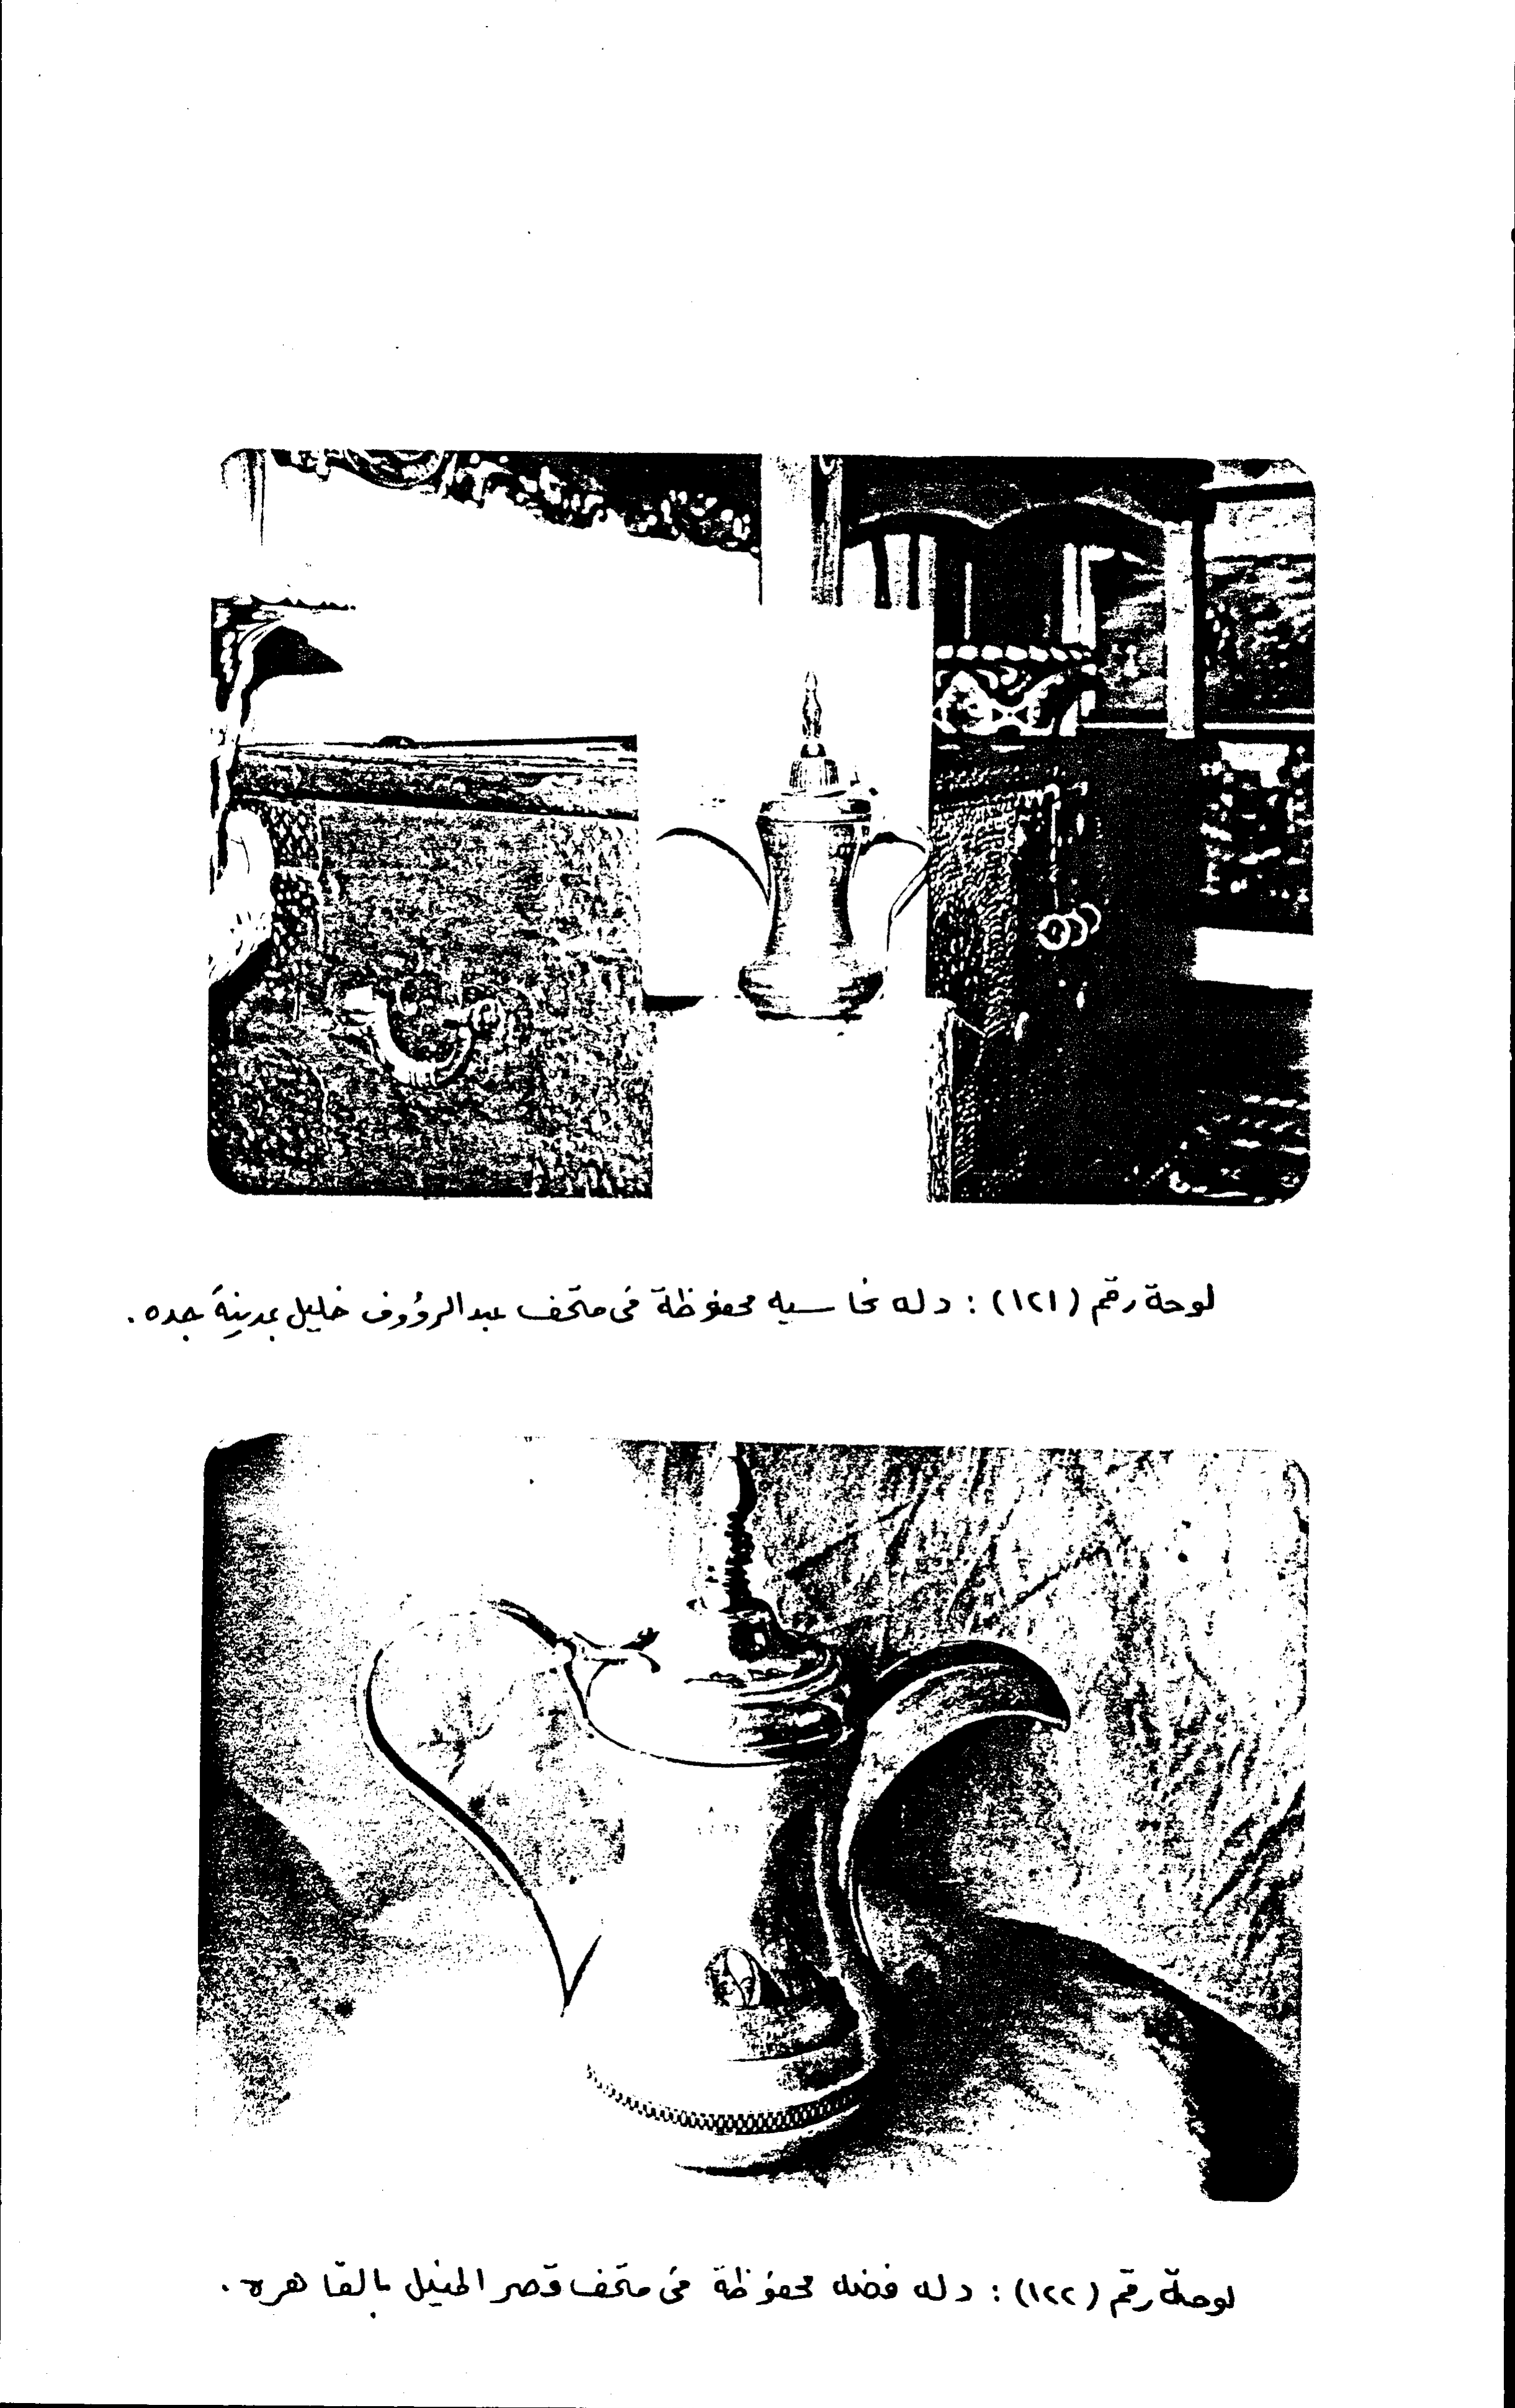 لوحة رقم (١٢١) : دله نحاسيه محفوظة في متحف عبدالرؤوف خليل بمدينة جده .
لوحة رقم (١٢٢) : دله فضه محفوظة في متحف قصر المنيل بالقاهره .